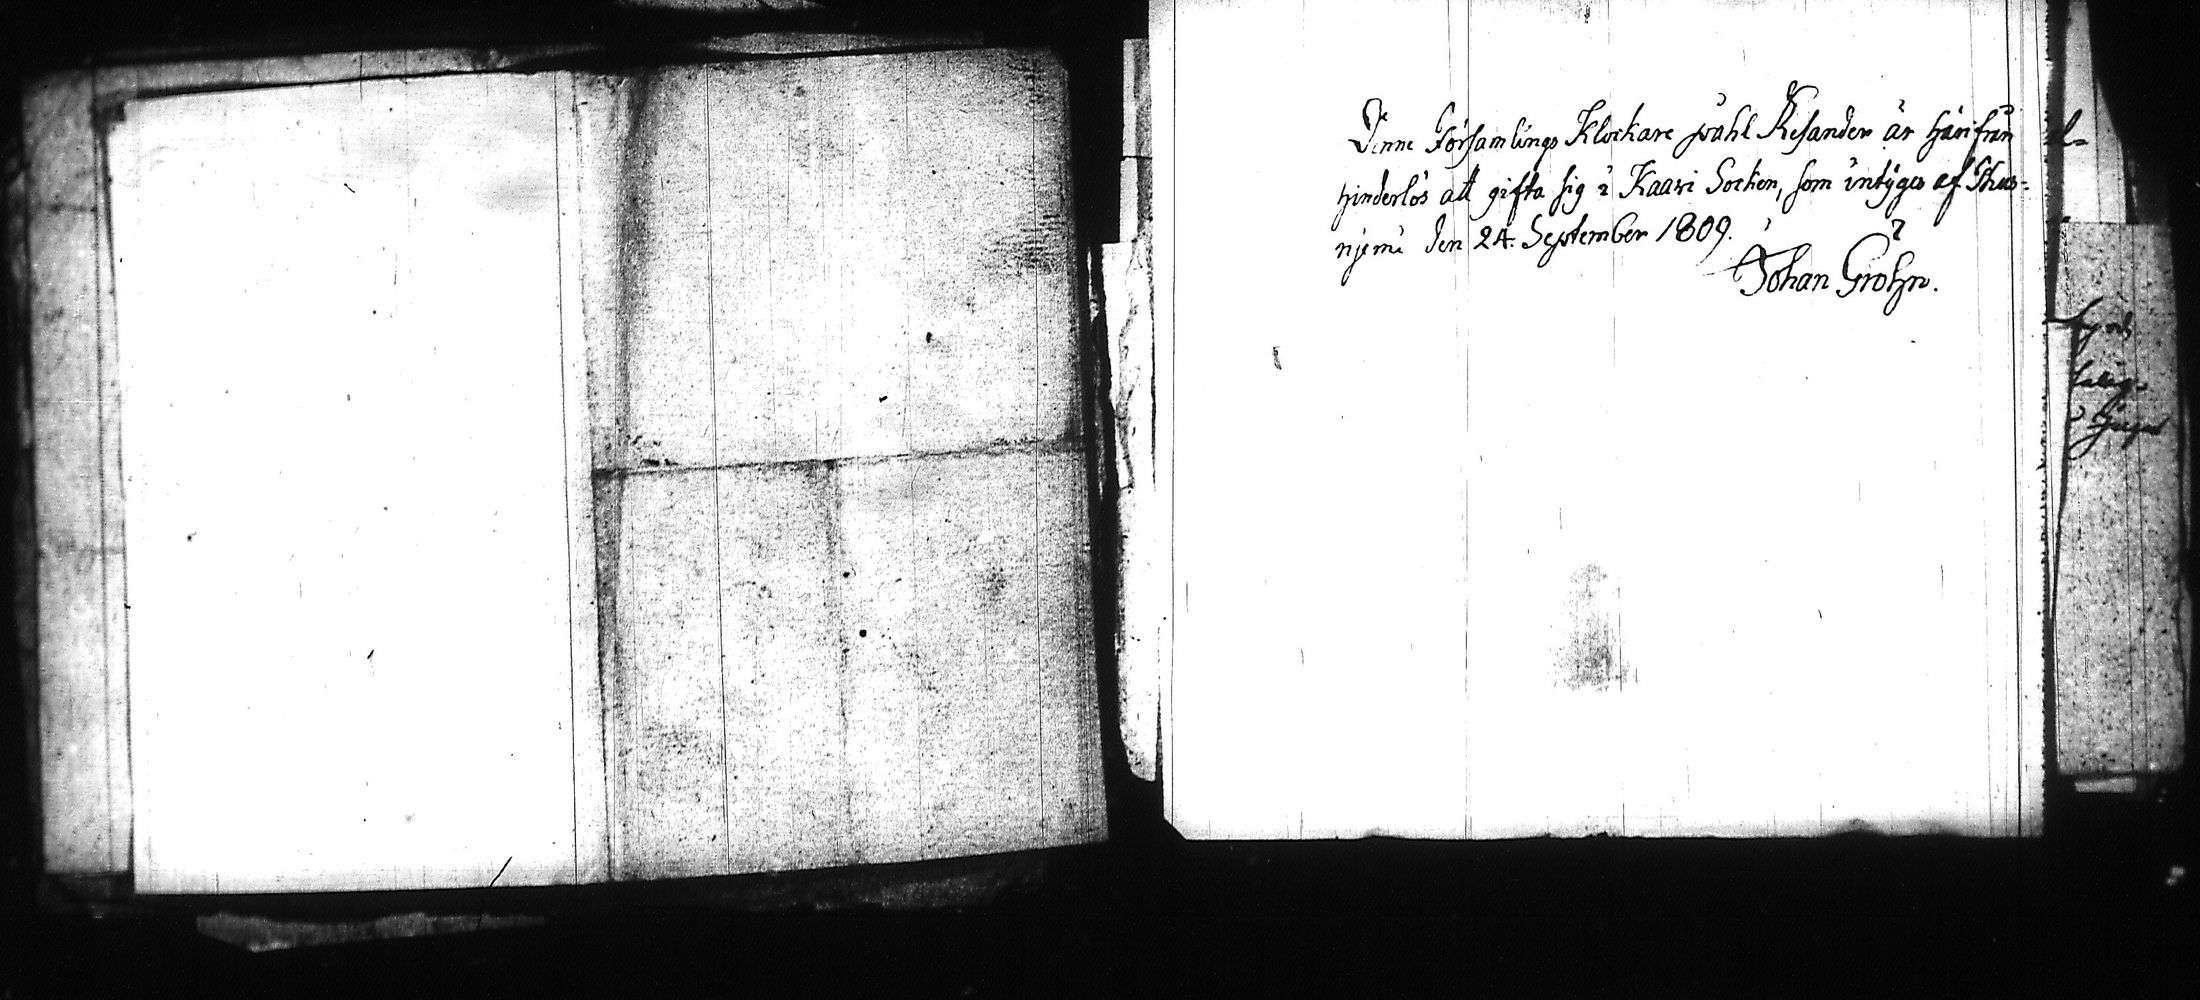 Denne Församlings Klockare wähl Resander är härifrån
hinderlös att gifta sig i Kaavi Socken, som intygas af Thus-
njemi den 24. September 1809.
Johan Grohn.